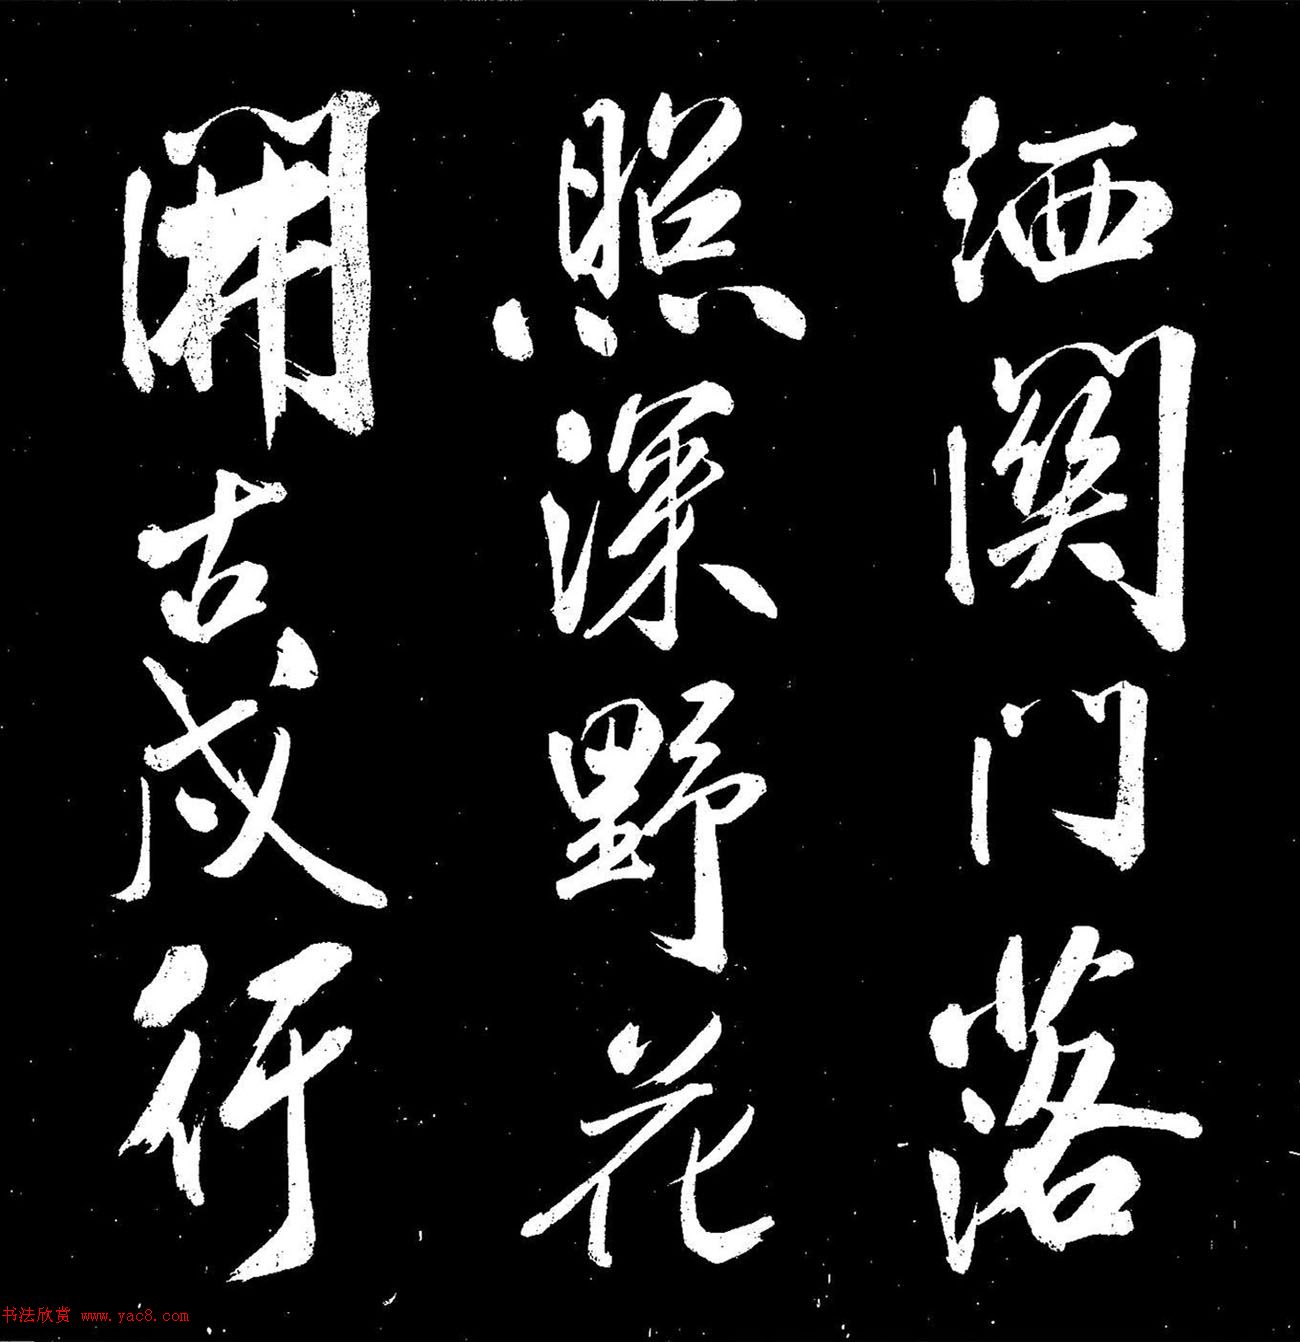 洒關门落
照深野花
開古戍行
书法欣赏 www.yac8.com